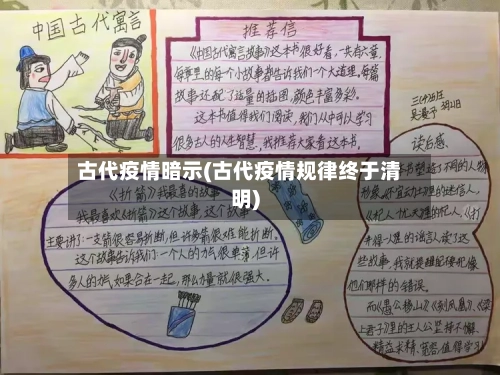 中国古代寓言
推荐信
《中国古代寓言故事》这本书很好看,一共有六章,
每章里的每个小故事都告诉我们一个大道理。每篇
故事还配了适量的插图,颜色丰富多彩。
这本书值得我们阅读,我们从中可以学习
很多古人的人生智慧,我推荐大家看这本书。
读后感
古代疫情暗示(古代疫情规律终于清
明)
《折箭》我最喜的故事
我最喜欢《折箭》这个故事,这个故事
主要讲了:一支箭很容易折断,但许多箭很难能折断。
这个故事告诉我们一个人的力气很单薄,但许
多人的力气如果合在一起,那么力量就很强大。
塑造了不同的人物
《杞人忧天》里的杞人、《打
井得一人》里的谣言人,读了这
些故事,我就提醒
他们那样的错误。
而《愚公移山》《
王羲之》里的主人公坚持不懈、
精益求精、宽容,值得学习